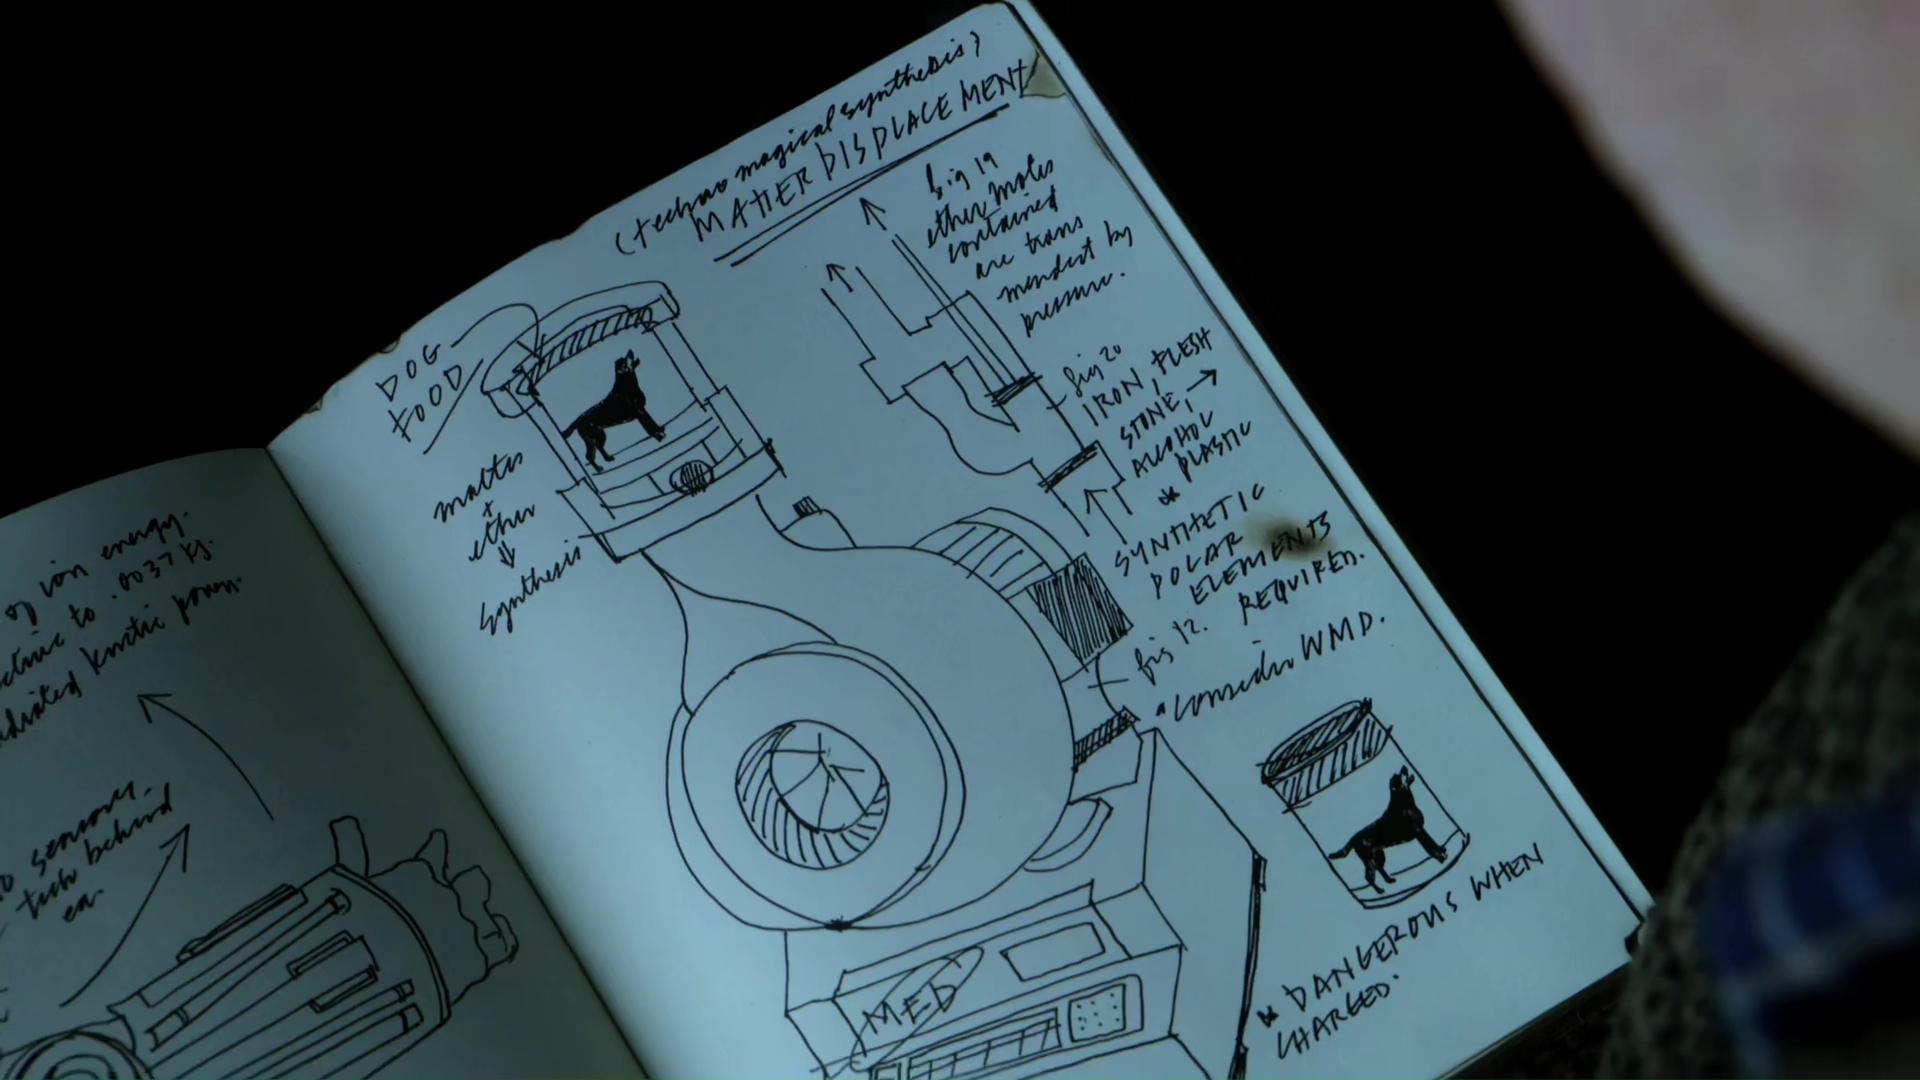 of ion energy.
to .0037 kj.
kinetic power.
sensors.
tech behind
ear
(techno magical synthesis)
MATTER DISPLACEMENT
DOG
FOOD
matter
+
ether
synthesis
fig 19
ether motes
contained
are trans
by
pressure.
fig 20
IRON, FLESH
STONE,
ALCOHOL
* PLASTIC
SYNTHETIC
POLAR
ELEMENTS
REQUIRED.
fig 12.
consider WMD.
MED
* DANGEROUS WHEN
CHARGED.